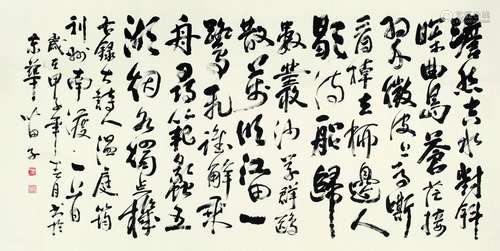 澹然空水對斜
暉曲島蒼茫接
翠微波上馬嘶
看棹去柳邊人
歇待船歸
數叢沙草群鷗
散萬頃江田一
鷺飛誰解乘
舟尋範蠡五
湖烟水獨忘機
右錄大詩人温庭筠
利州南渡一首
歲在甲子年月書於
東華